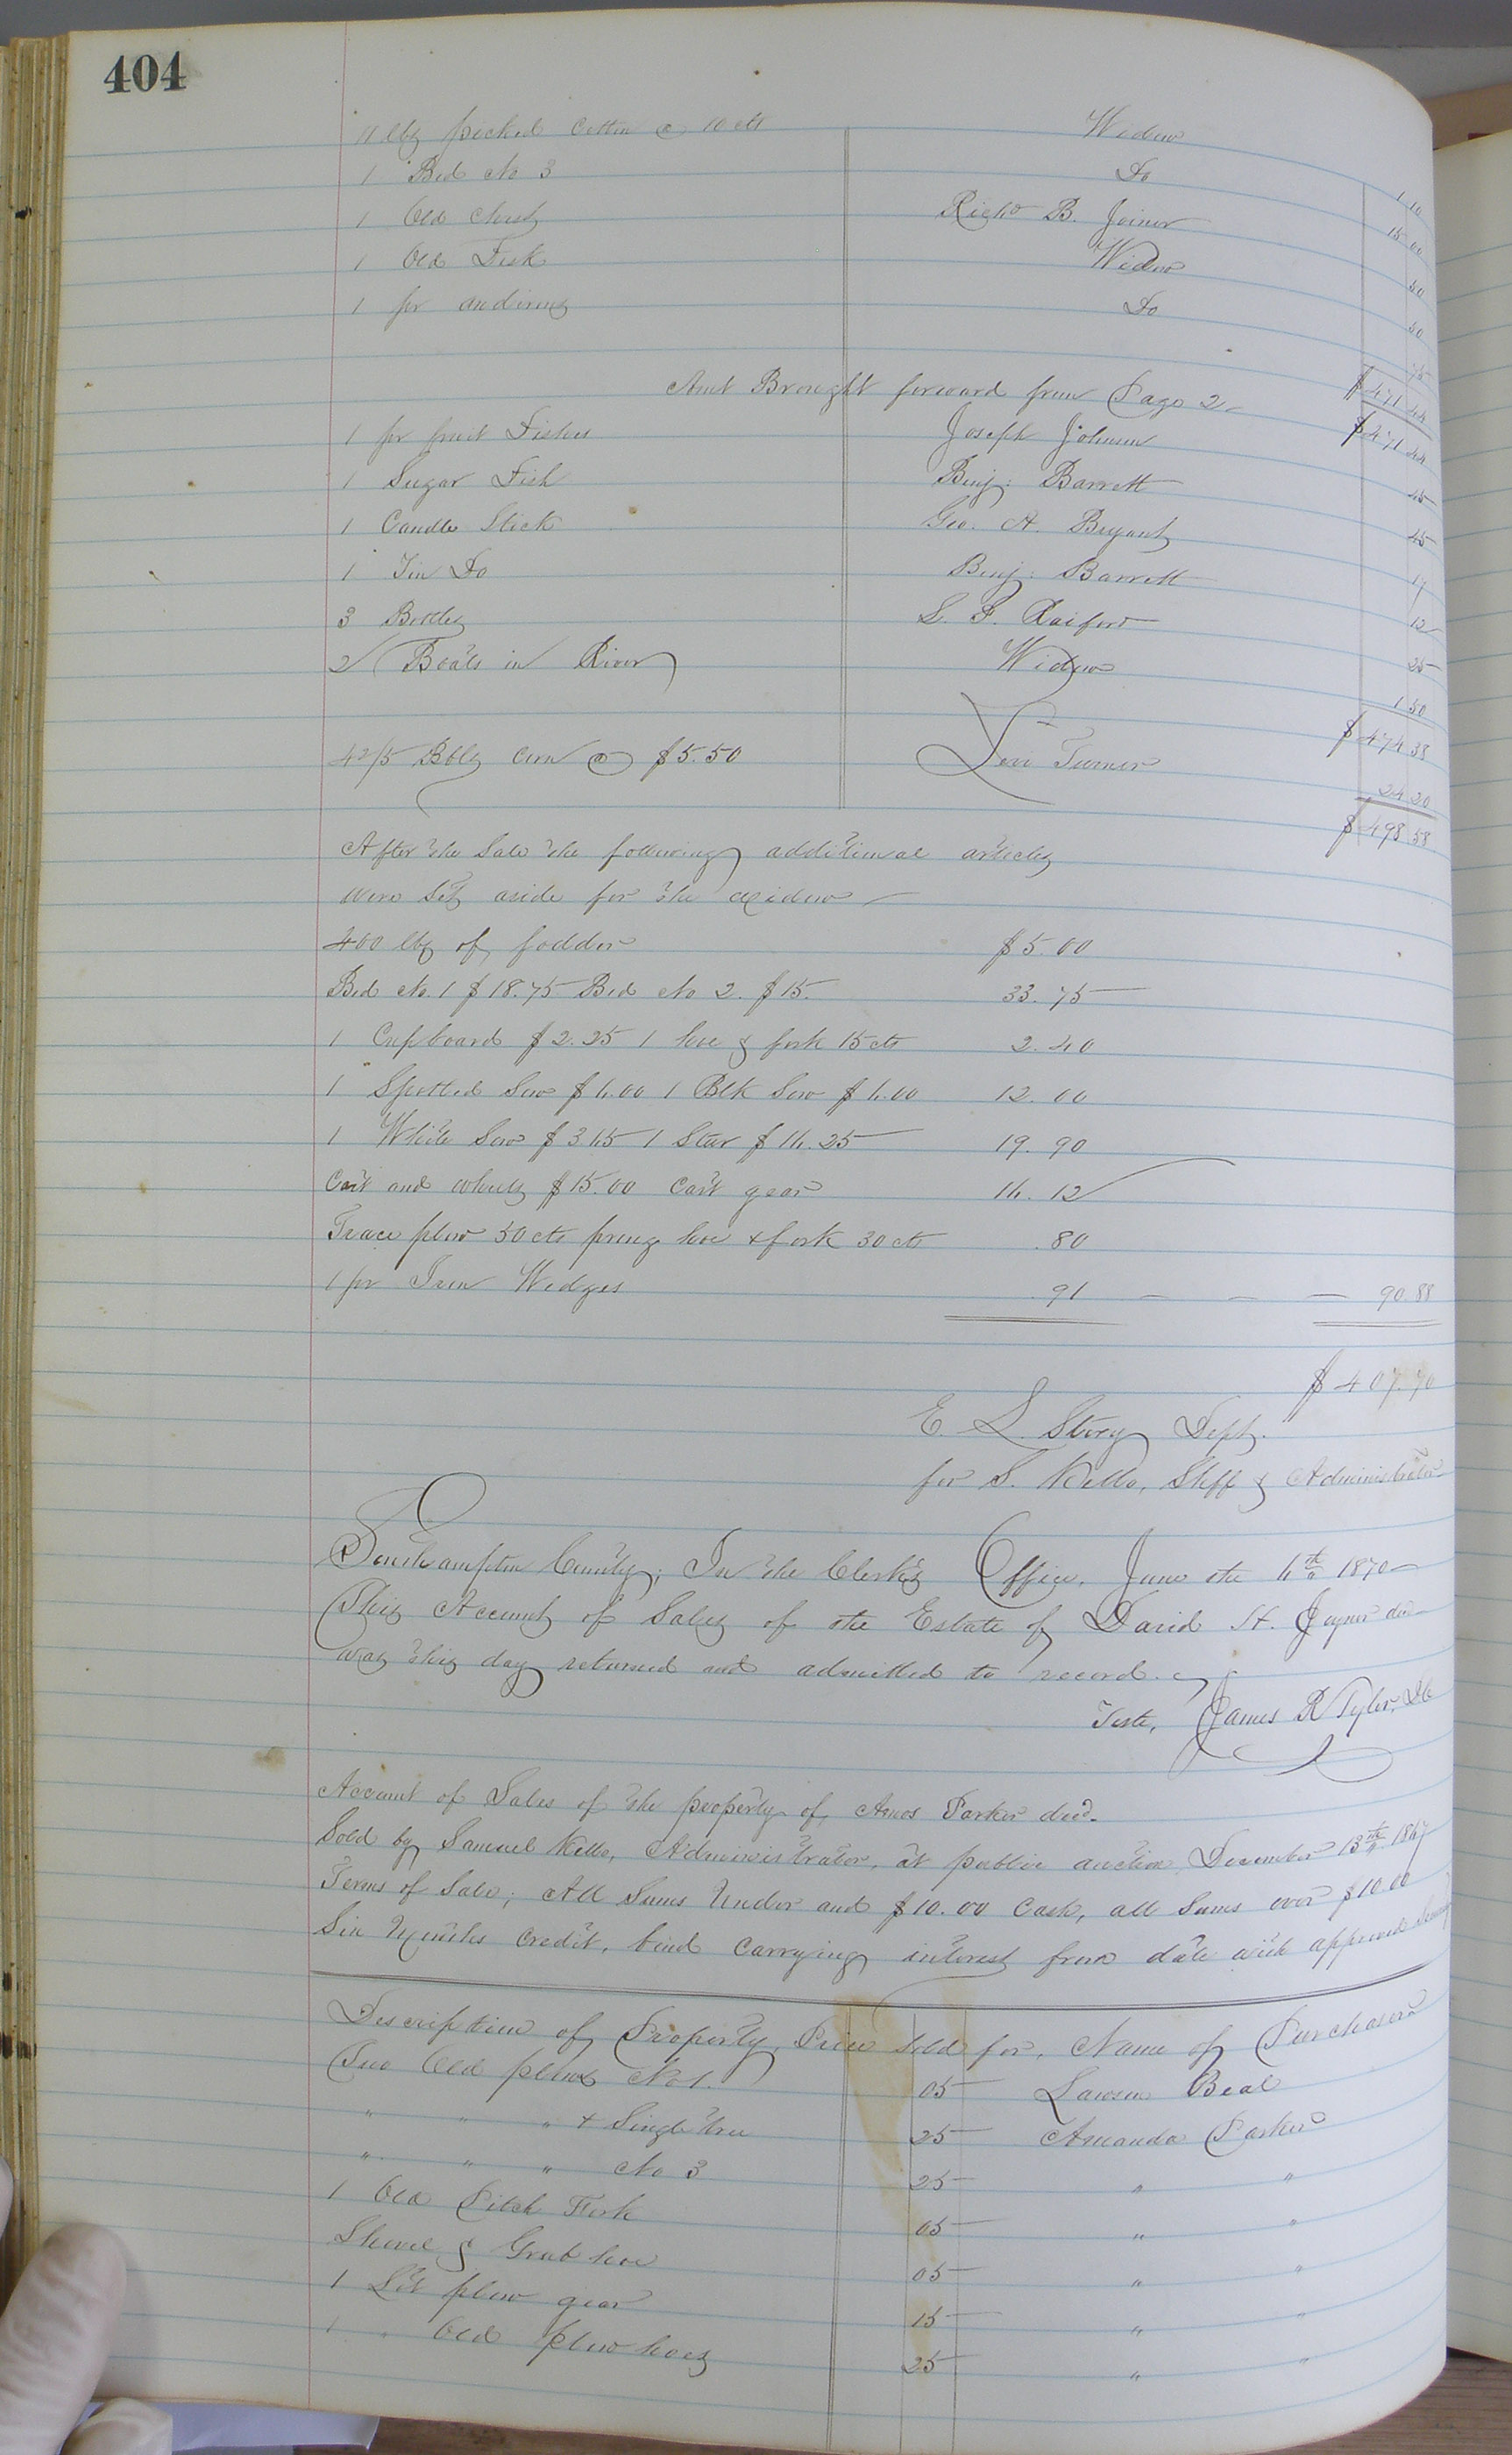 404
11 lbs picked Cotton @ 10 cts Widow 1 10
1 Bed No 3 Do 15 00
1 Old Chest Richd B. Joiner 50
1 Old Desk Widow 50
1 pr andirons Do 75
$471 44
Amt Brought forward from Page 2 $471 44
1 pr fruit Dishes Joseph Johnson 45
1 Sugar Dish Benj: Barrett 45
1 Candle Stick Geo. A. Bryant 17
1 Tin Do Benj: Barrett 12
3 Bottles L. F. Raiford 25
2 Boats in River Widow 1 50
$474 38
4 2/5 Bbls Corn @ $5.50 Levi Turner 24 20
$498 58
After the Sale the following additional articles
were set aside for the widow
400 lbs of fodder $5.00
Bed No. 1 $18.75 Bed No 2. $15. 33.75
1 Cupboard $2.25 1 hoe & fork 15 cts 2.40
1 Spotted Sow $6.00 1 Blk Sow $6.00 12.00
1 White Sow $3 65 1 Star $16.25 19.90
Cart and wheels $15.00 Cart gear 16.12
Trace plow 50 cts prong hoe & fork 30 cts .80
1 pr Iron Wedges .91 — — — 90.88
$407.70
E. L. Story Dept.
for S. Kello, Shff & Administrator
Southampton County; In the Clerk's Office, June the 6th 1870
This Account of Sales of the Estate of David H. Joyner decd
was this day returned and admitted to record.
Teste, James R Tyler, DC
Account of Sales of the property of Amos Parker decd.
Sold by Samuel Kello, Administrator, at public auction, December 13th 1867
Terms of Sale; All Sums Under and $10.00 Cash, all Sums over $10.00
Six Months Credit, bond Carrying interest from date with approved Security
Description of Property, Price Sold for, Name of Purchaser
Two Old plows No 1. 05 Lawson Beal
" " " & Single tree 25 Amanda Parker
" " " No 3 25 " "
1 Old Pitch Fork 05 " "
Shovel & Grub hoe 05 " "
1 Set plow gear 15 " "
1 " Old plow hoes 25 " "